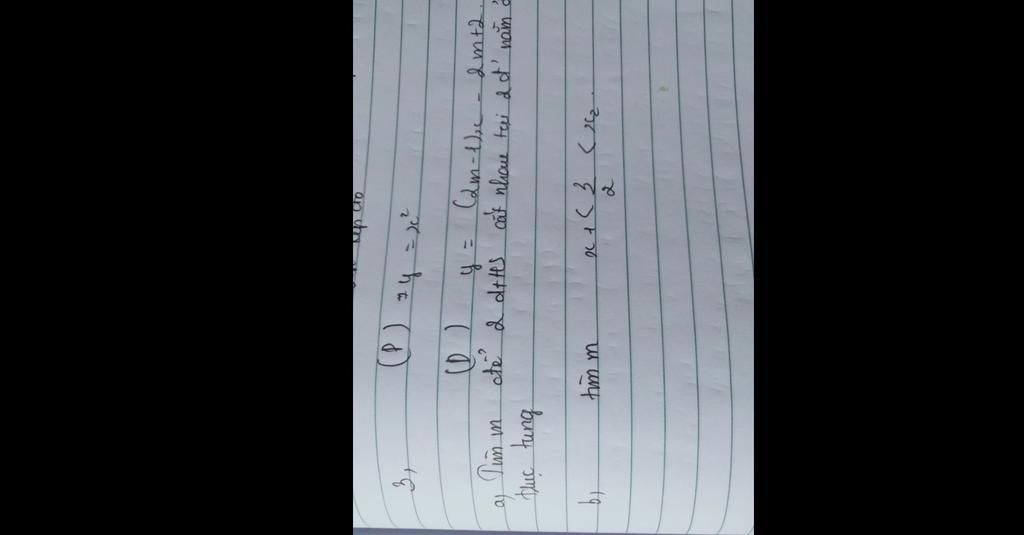 3, (P) y = x²
(D) y = (2m-1)x - 2m+2.
a, Tìm m để 2 đths cắt nhau tại 2 đ' nằm
trục tung
b, tìm m x1 < 3/2 < x2.